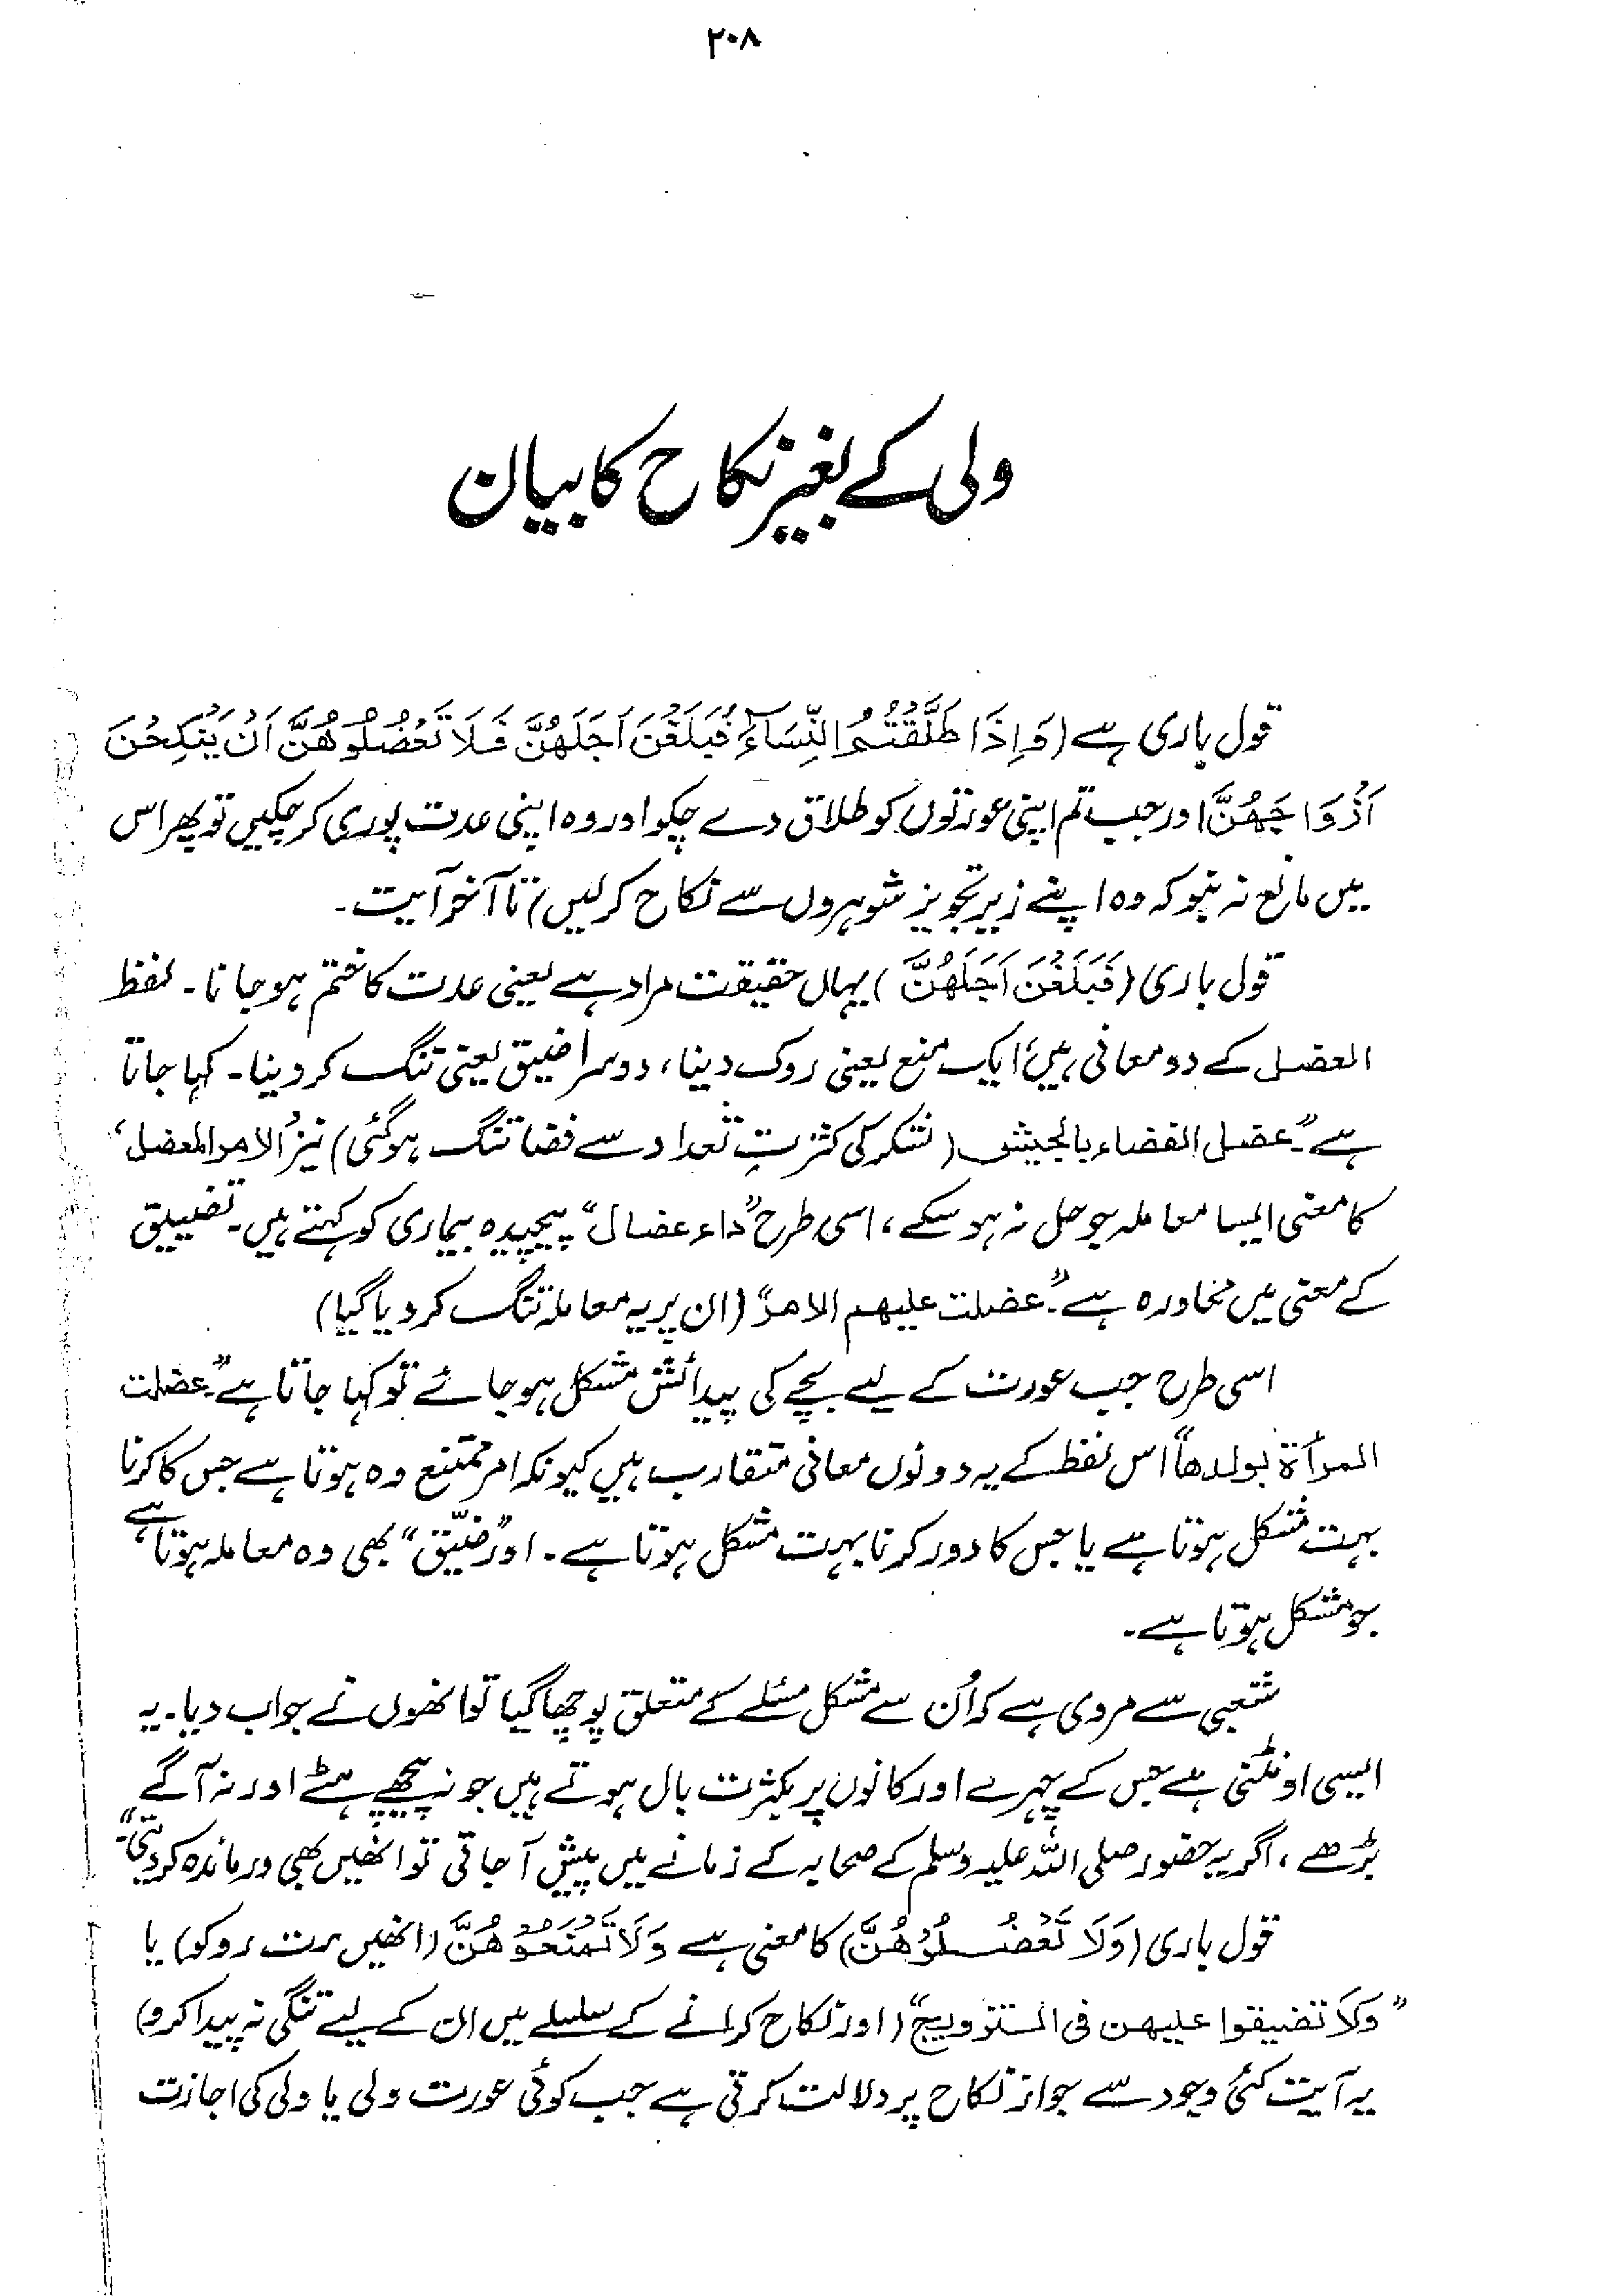 ۲۰۸
ولی کے بغیر نکاح کا بیان
قول باری ہے (وَاِذَا طَلَّقْتُمُ النِّسَآءَ فَبَلَغْنَ اَجَلَهُنَّ فَلَا تَعْضُلُوْهُنَّ اَنْ يَّنْكِحْنَ
اَزْوَاجَهُنَّ اور جب تم اپنی عورتوں کو طلاق دے چکو اور وہ اپنی عدت پوری کر چکیں تو پھر اس
میں مانع نہ بنو کہ وہ اپنے زیر تجویز شوہروں سے نکاح کر لیں) تا آخر آیت۔
قول باری (فَبَلَغْنَ اَجَلَهُنَّ) یہاں حقیقت مراد ہے یعنی عدت کا ختم ہو جانا۔ لفظ
العضل کے دو معانی ہیں، ایک منع یعنی روک دینا، دوسرا ضیق یعنی تنگ کر دینا۔ کہا جاتا
ہے "عضل الفضاء بالجیش (لشکر کی کثرتِ تعداد سے فضا تنگ ہو گئی) نیز الامر المعضل،
کا معنی ایسا معاملہ جو حل نہ ہو سکے، اسی طرح "داء عضال" پیچیدہ بیماری کو کہتے ہیں۔ تضییق
کے معنی میں محاورہ ہے "عضلت علیهم الامر" (ان پر یہ معاملہ تنگ کر دیا گیا)
اسی طرح جب عورت کے لیے بچے کی پیدائش مشکل ہو جائے تو کہا جاتا ہے "عضلت
المرأة بولدها" اس لفظ کے یہ دونوں معانی متقارب ہیں کیونکہ امر ممتنع وہ ہوتا ہے جس کا کرنا
بہت مشکل ہوتا ہے یا جس کا دور کرنا بہت مشکل ہوتا ہے۔ اور "ضیّق" بھی وہ معاملہ ہوتا ہے
جو مشکل ہوتا ہے۔
شعبی سے مروی ہے کہ اُن سے مشکل مسئلے کے متعلق پوچھا گیا تو انھوں نے جواب دیا۔ یہ
ایسی اونٹنی ہے جس کے چہرے اور کانوں پر بکثرت بال ہوتے ہیں جو نہ پیچھے ہٹے اور نہ آگے
بڑھے، اگر یہ حضور صلی اللہ علیہ وسلم کے صحابہ کے زمانے میں پیش آ جاتی تو انھیں بھی درماندہ کر دیتی"۔
قول باری (وَلَا تَعْضُلُوْهُنَّ) کا معنی ہے وَلَا تَمْنَعُوْهُنَّ (انھیں مت روکو) یا
"وَلَا تضیقوا علیهن فی التزویج" (اور نکاح کرانے کے سلسلے میں ان کے لیے تنگی نہ پیدا کرو)
یہ آیت کئی وجود سے جواز نکاح پر دلالت کرتی ہے جب کوئی عورت ولی یا ولی کی اجازت